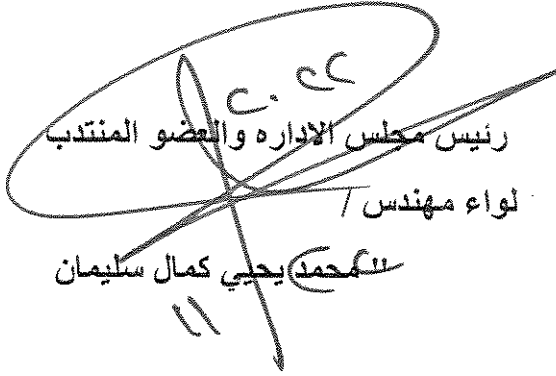 رئيس مجلس الاداره والعضو المنتدب
لواء مهندس /
محمد يحيي كمال سليمان